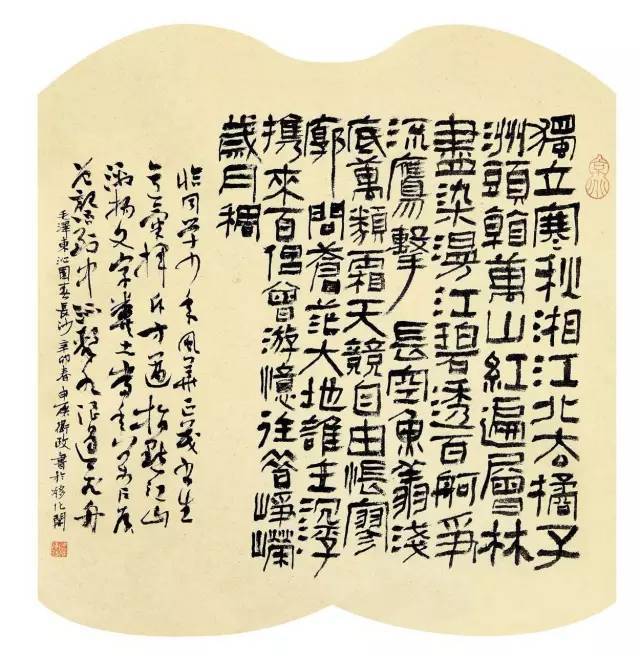 獨立寒秋湘江北去橘子
洲頭看萬山紅遍層林
盡染漫江碧透百舸爭
流鷹擊長空魚翔淺
底萬類霜天競自由悵寥
廓問蒼茫大地誰主沉浮
携來百侣曾游憶往昔崢嶸
歲月稠
恰同学少年風華正茂書生
意氣揮斥方遒指點江山
激揚文字糞土當年萬户侯
曾記否到中流擊水浪遏飛舟
毛澤東沁園春長沙辛卯春 政書於移化閣